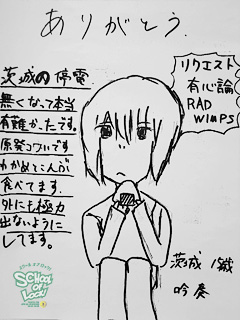 ありがとう.
茨城の停電
無くなって本当
有難かったです。
原発コワいです
わかめでこんぶ
食べてます.
外にも極力
出ないように
してます。
リクエスト
有心論
RAD
WIMPS
SCHOOL
OF
LOCK!
茨城 1歳
吟奏